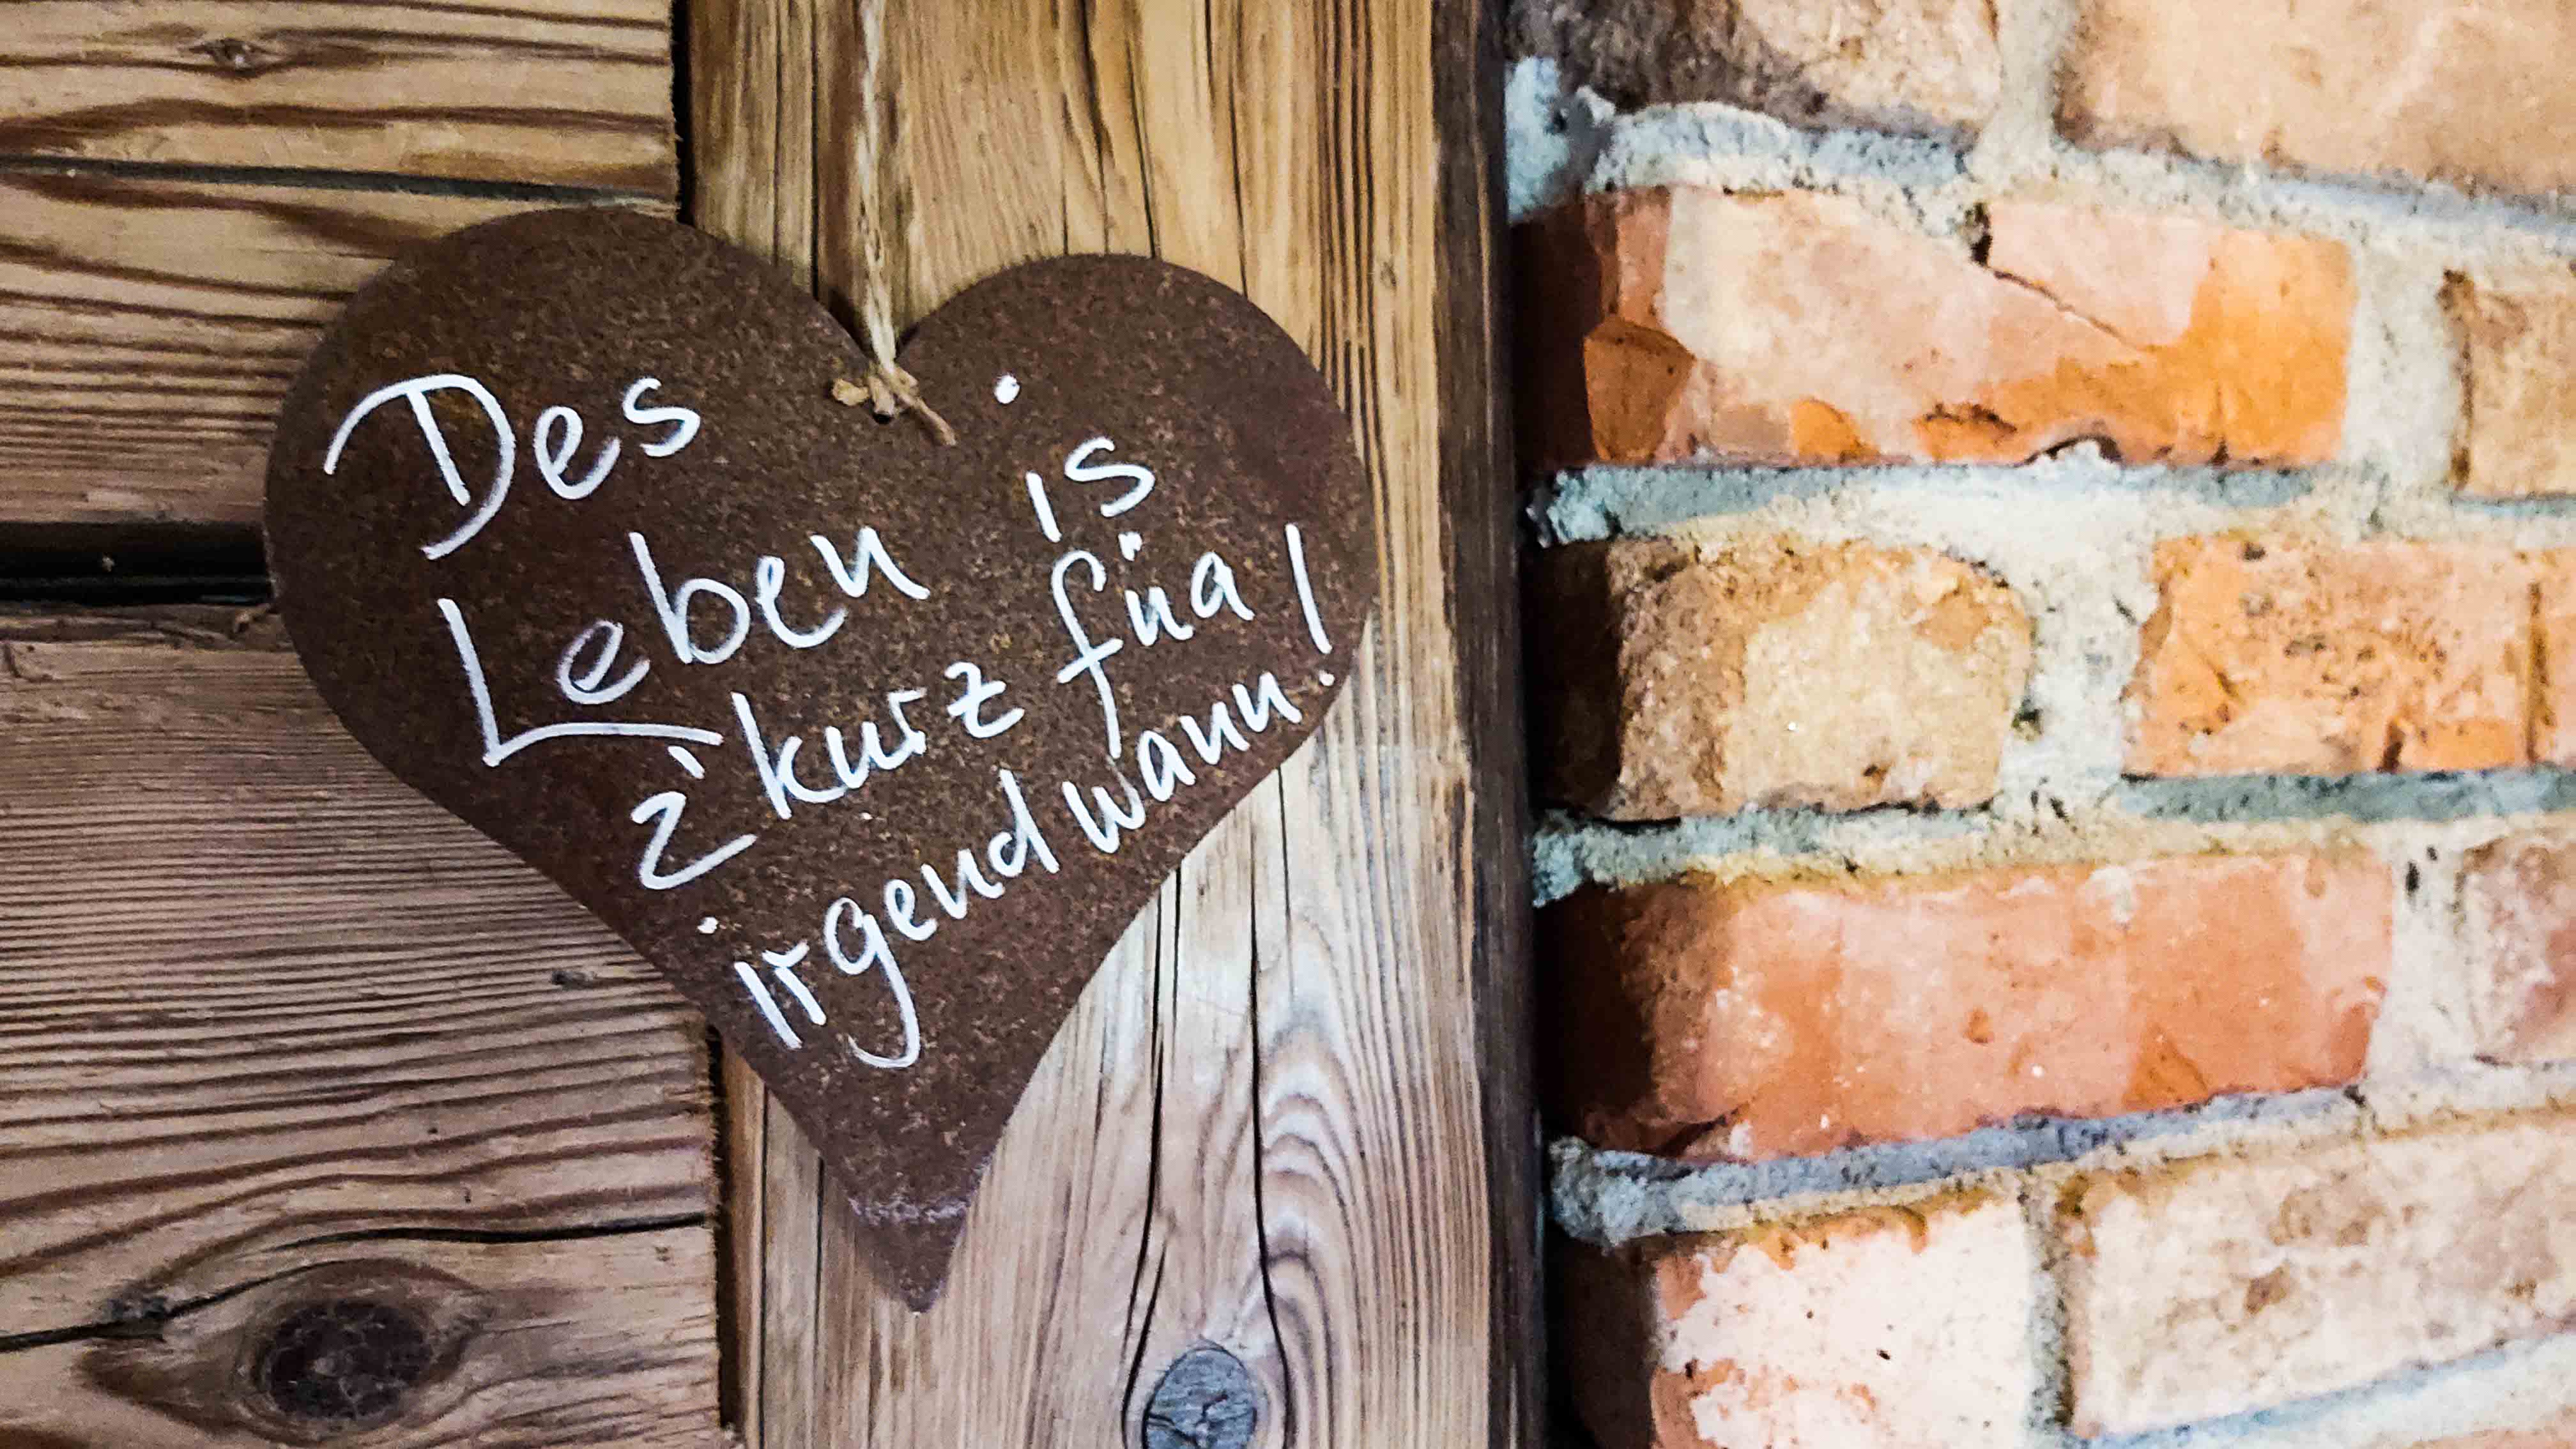 Des
Leben is
z'kurz füa
irgendwann!